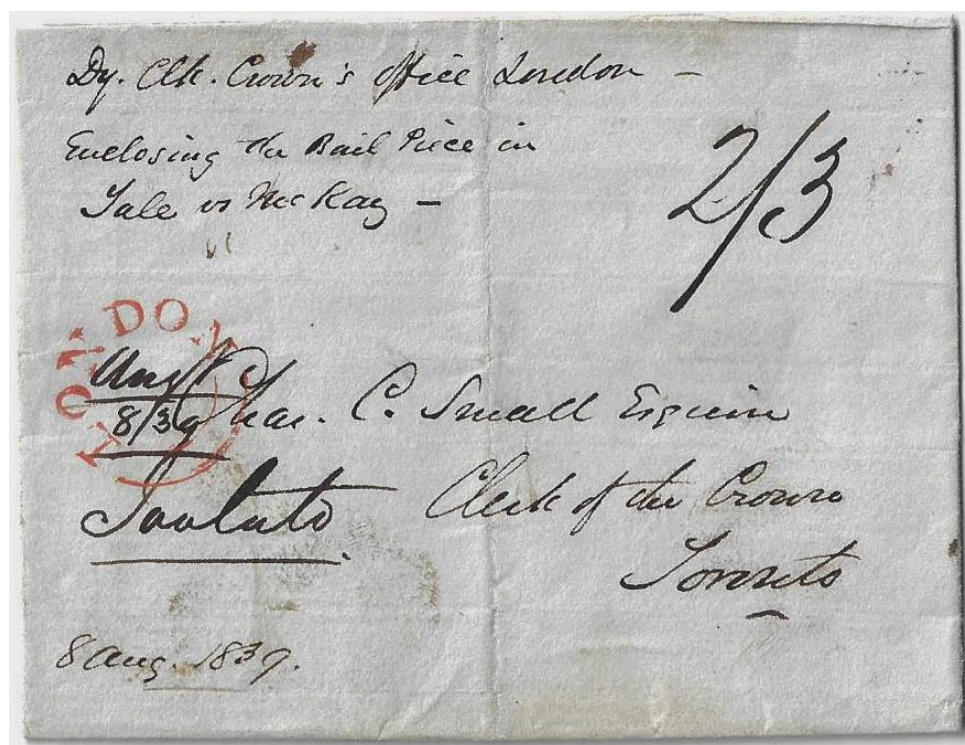 Dy. Clk. Crown's Office London –
Enclosing the Bail Piece in
Tale vs McKay –
2/3
LONDON
Augt
8/39
Chas. C. Small Esquire
Clerk of the Crown
Toronto
8 Aug. 1839.